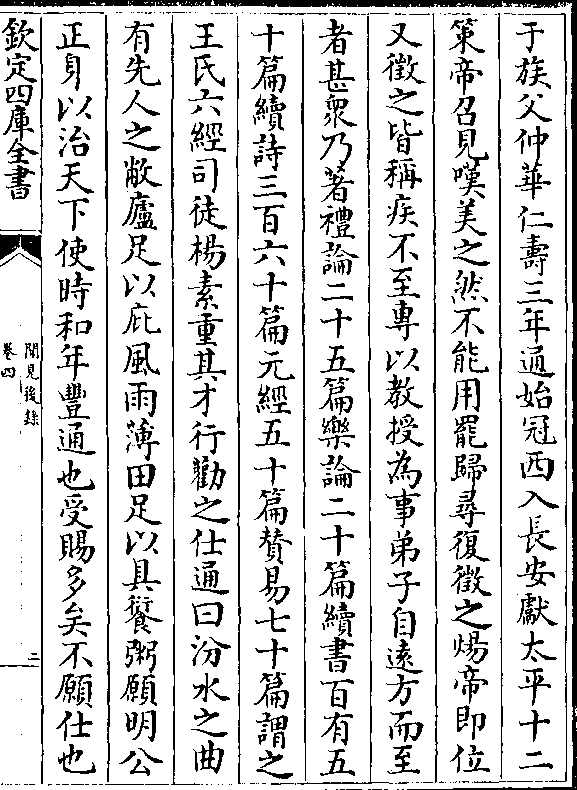 于族父仲華仁壽三年通始冠西入長安獻太平十二
策帝召見嘆美之然不能用罷歸尋復徵之煬帝即位
又徵之皆稱疾不至專以教授為事弟子自遠方而至
者甚衆乃著禮論二十五篇樂論二十篇續書百有五
十篇續詩三百六十篇元經五十篇賛易七十篇謂之
王氏六經司徒楊素重其才行勸之仕通曰汾水之曲
有先人之敝廬足以庇風雨薄田足以具饘粥願明公
正身以治天下使時和年豐通也受賜多矣不願仕也
欽定四庫全書
聞見後錄
卷四
二